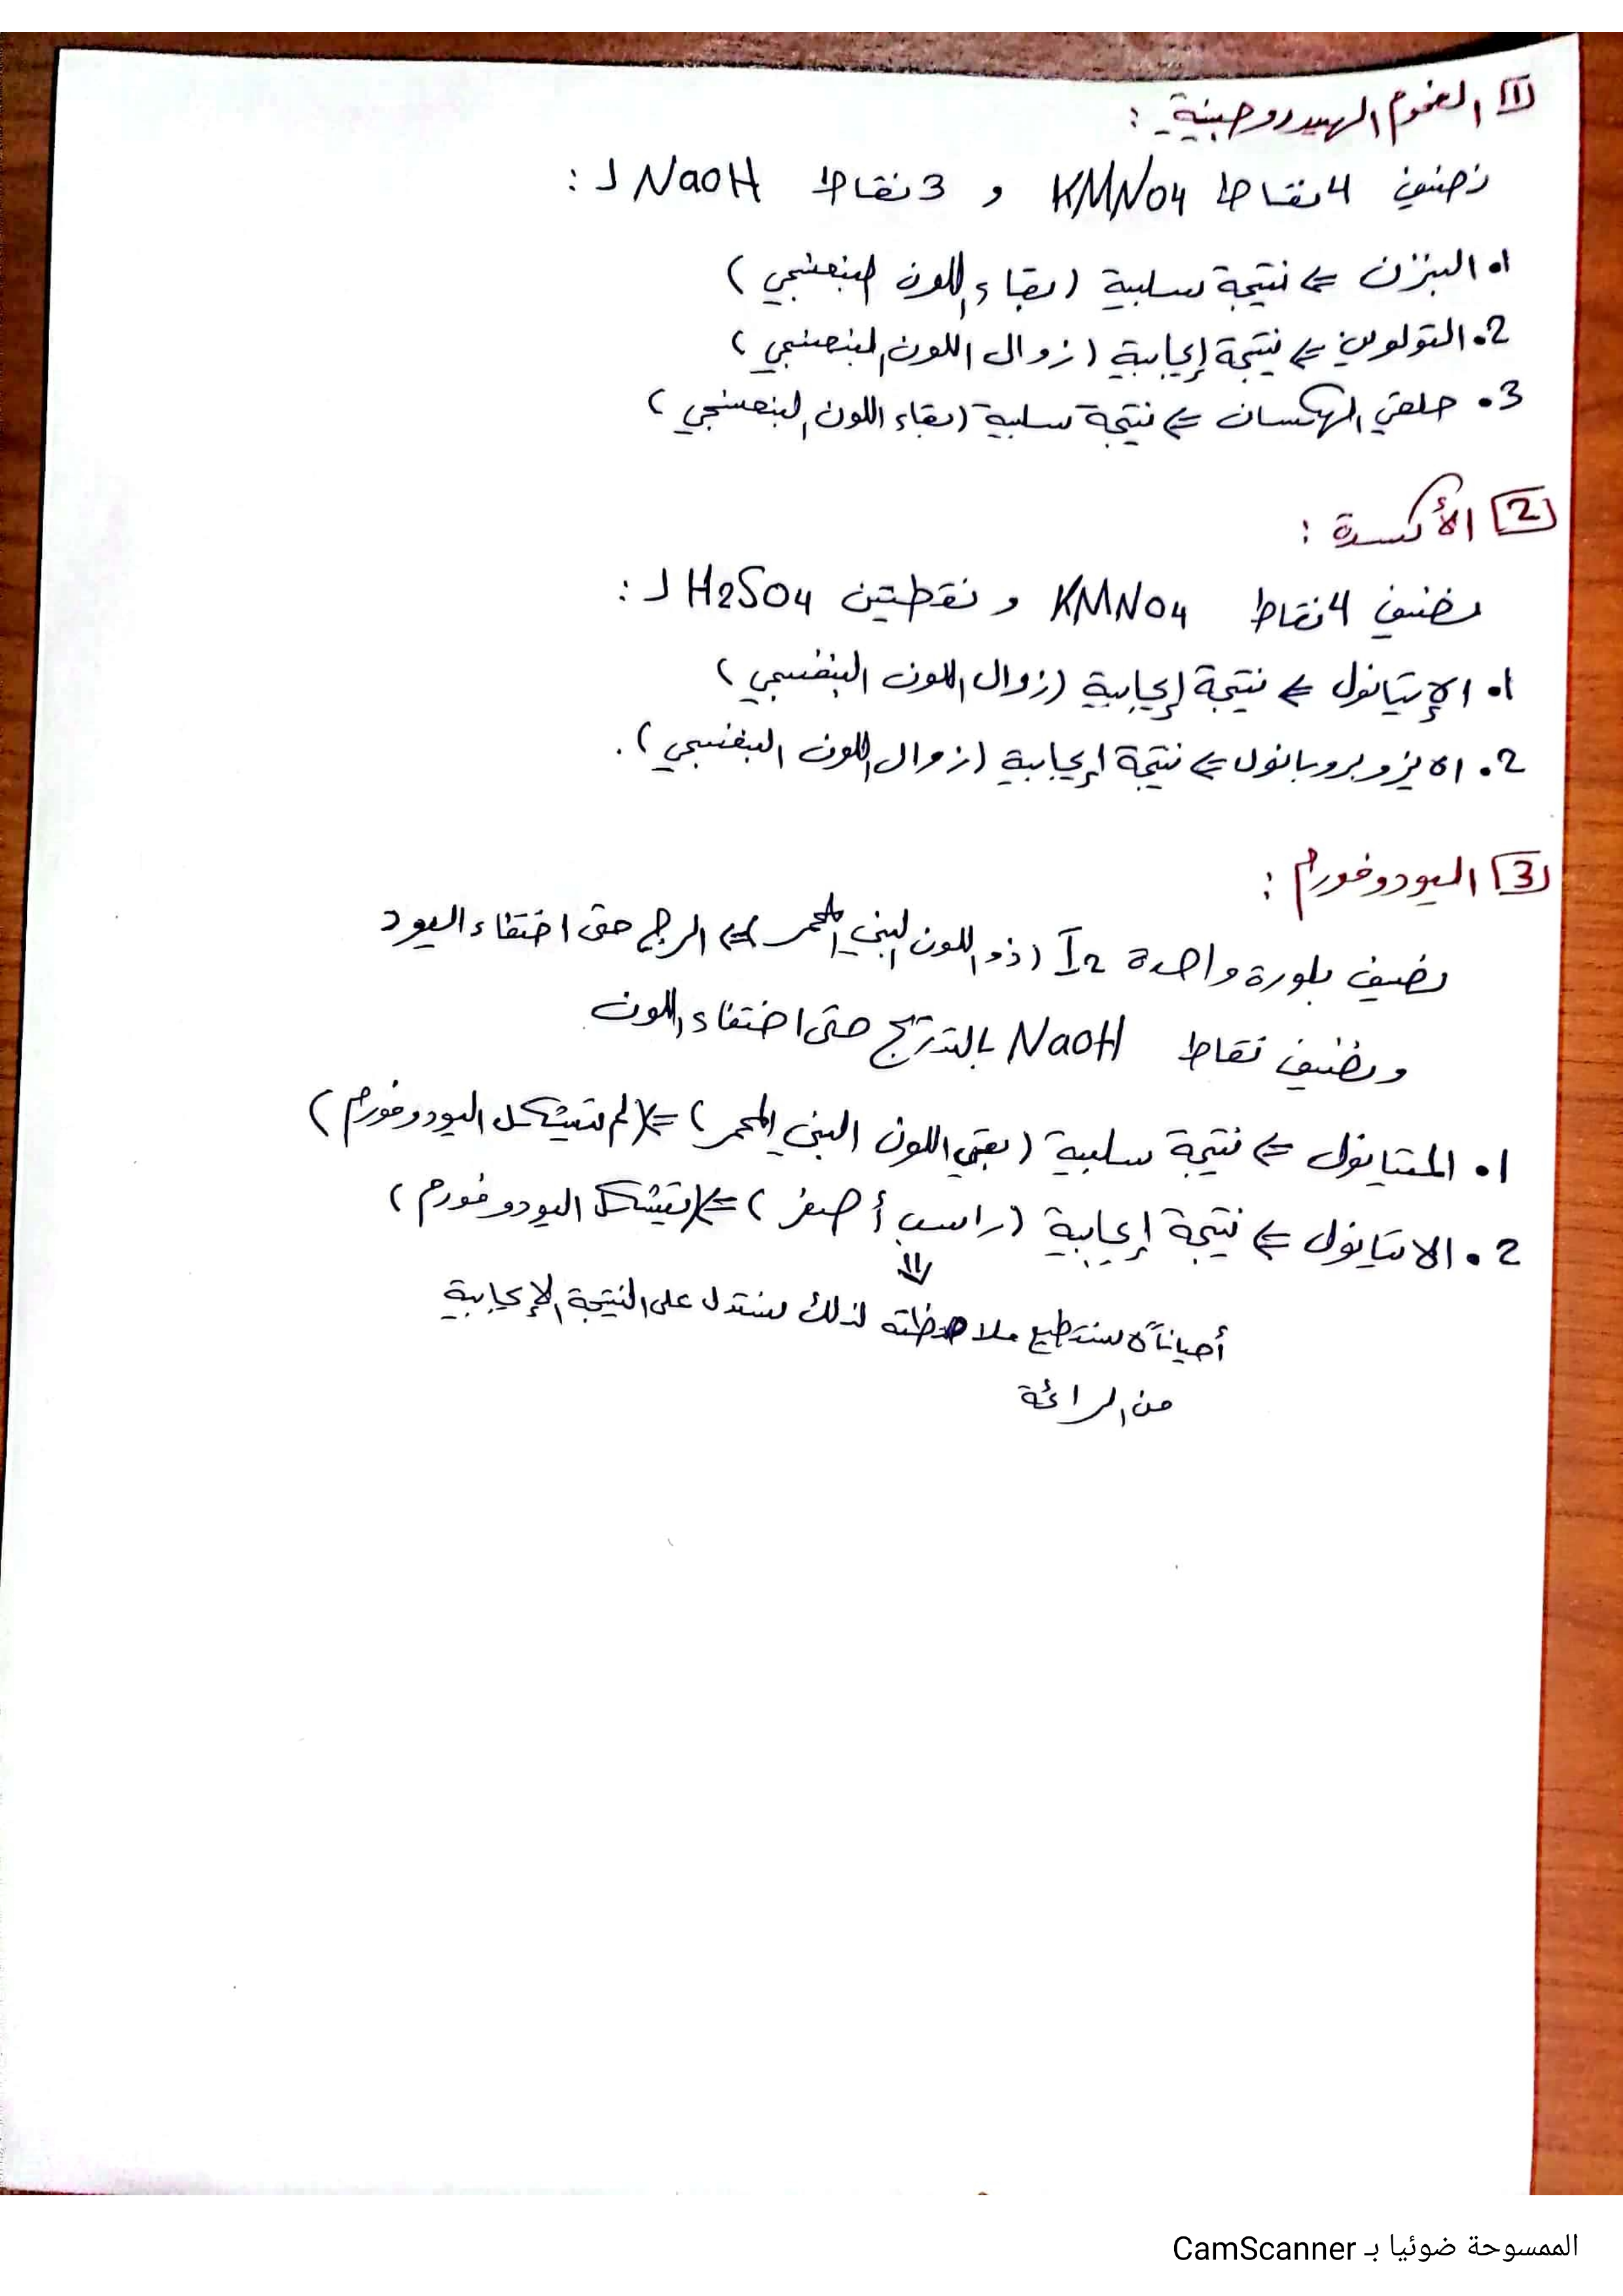 1 الفحوم الهيدروجينية :
نضيف 4 نقاط KMNO4 و 3 نقاط NaOH لـ :
1. البنزن ⇐ نتيجة سلبية (بقاء اللون البنفسجي)
2. التولوين ⇐ نتيجة إيجابية (زوال اللون البنفسجي)
3. حلقي الهكسان ⇐ نتيجة سلبية (بقاء اللون البنفسجي)
2 الأكسدة :
نضيف 4 نقاط KMNO4 و نقطتين H2SO4 لـ :
1. الإيتانول ⇐ نتيجة إيجابية (زوال اللون البنفسجي)
2. الايزوبروبانول ⇐ نتيجة إيجابية (زوال اللون البنفسجي).
3 اليودوفورم :
نضيف بلورة واحدة I2 (ذو اللون البني المحمر) ⇐ الرج حتى اختفاء اليود
ونضيف نقاط NaOH بالتدريج حتى اختفاء اللون
1. الميتانول ⇐ نتيجة سلبية (بقي اللون البني المحمر) ⇐ (لم يتشكل اليودوفورم)
2. الايتانول ⇐ نتيجة إيجابية (راسب أصفر) ⇐ (يتشكل اليودوفورم)
⇓
أحياناً لا نستطيع ملاحظته لذلك نستدل على النتيجة الإيجابية
من الرائحة
الممسوحة ضوئيا بـ CamScanner